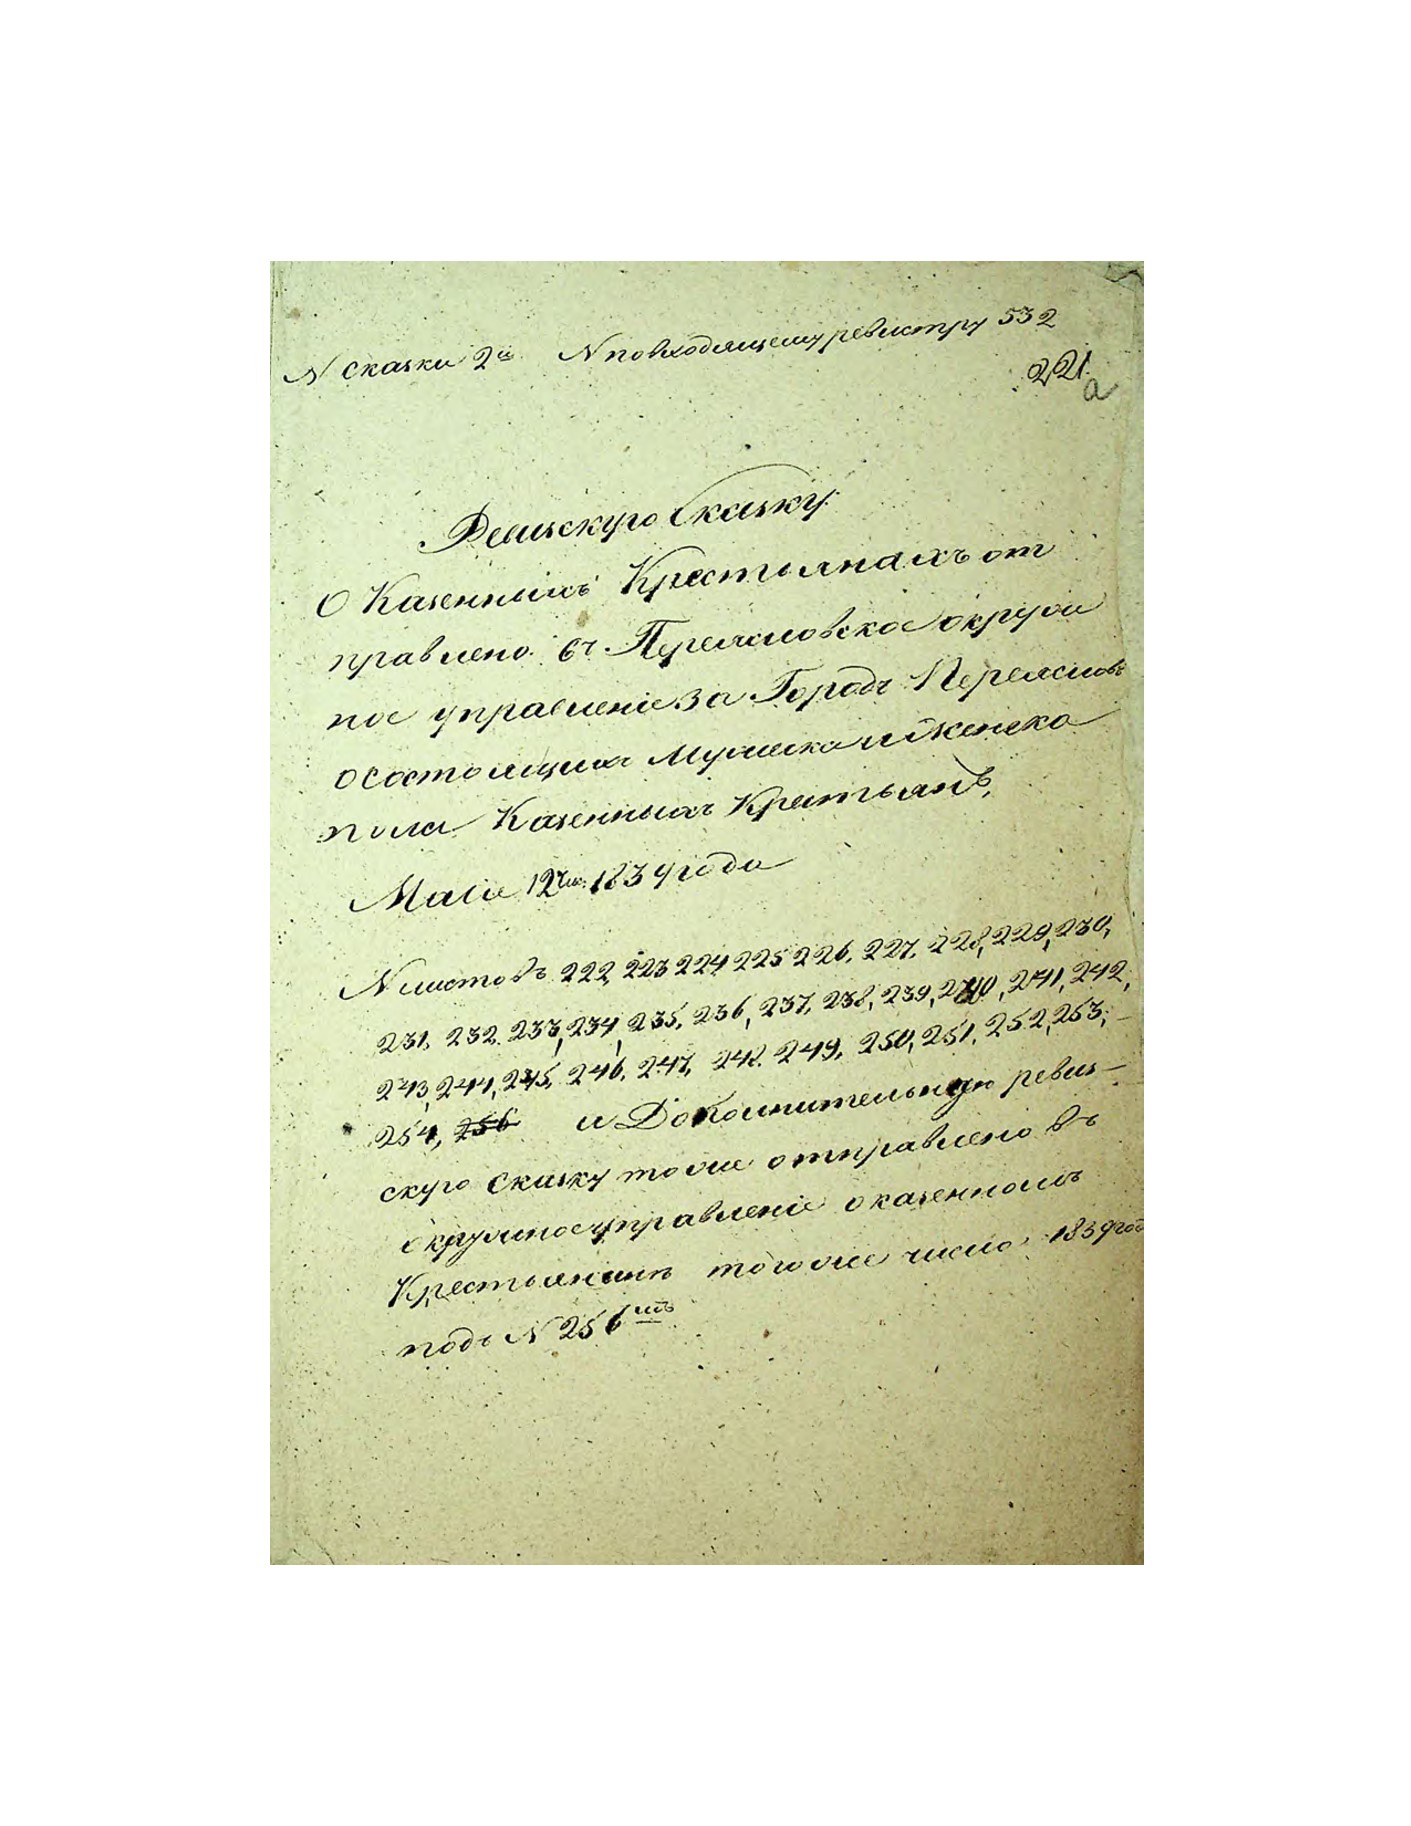 N Сказки 2й N повходящему ревистру 532
221.
а
Ревизскую Сказку
О Казенныхъ Крестьянахъ от
правлено въ Переясловское окружи
ное управленіе За Городъ Переясловъ
о состоящихъ Мужеска и женска
пола Казенныхъ Крестьянъ,
Маія 12 1839 года
N листовъ 222, 223 224, 225 226, 227, 228, 229, 230,
231, 232, 233, 234, 235, 236, 237, 238, 239, 240, 241, 242,
243, 244, 245, 246, 247, 248, 249, 250, 251, 252, 253,
254, 256 и Дополнительную ревиз-
скую сказку тоже отправлено въ
окружное управленіе о казенномъ
Крестьянинѣ того же число 1839 год
подъ N 256мъ